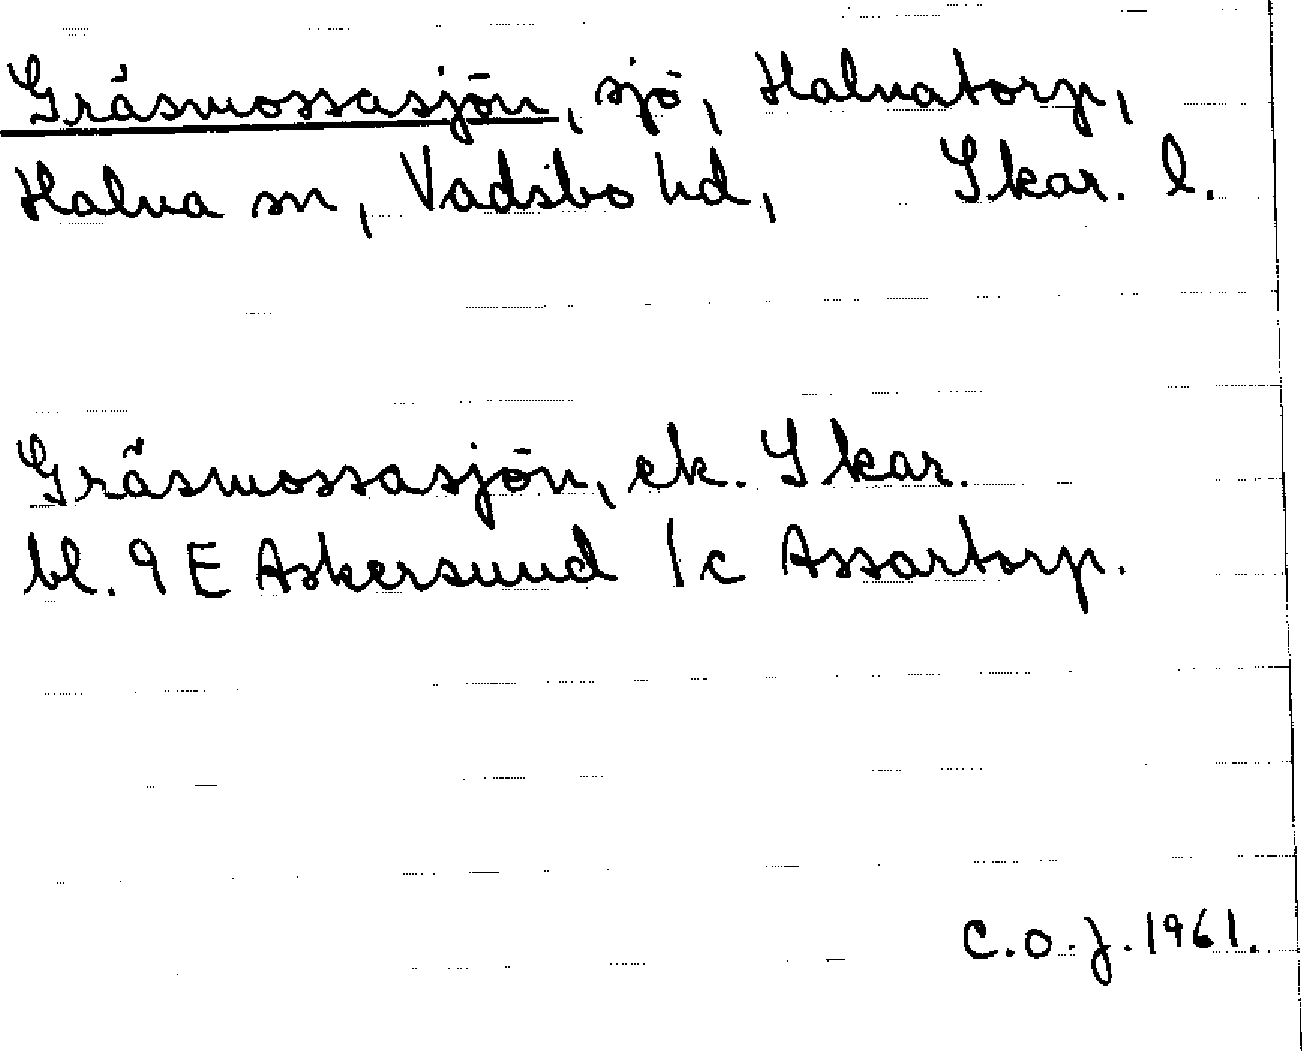 Gräsmossasjön, sjö, Halnatorp,
Halna sn, Vadsbo hd, Skar. l.
Gräsmossasjön, ek. Skar.
bl. 9 E Askersund 1c Assartorp.
C.O.J. 1961.